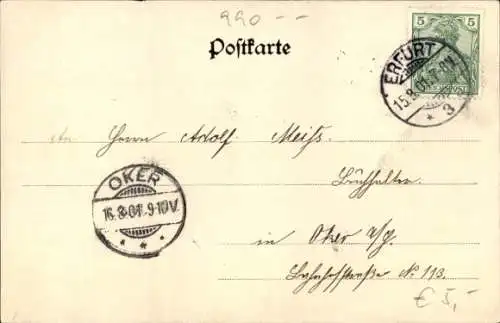 990 --
Postkarte
5
5
ERFURT
15.8.01.
* 3
An Herrn Adolf Meiss.
Buchhalter.
OKER
16.8.01.9-10V.
* * *
in Oker a/H.
Bahnhofstraße No 113.
€ 5,-